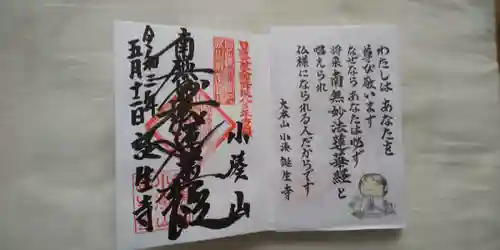 わたしは あなたを
尊び敬います
なぜなら あなたは必ず
将来 南無妙法蓮華経と
唱えられ
仏様になられる人だからです
大本山 小湊 誕生寺
小湊山
南無妙法蓮華経
五月十二日 誕生寺